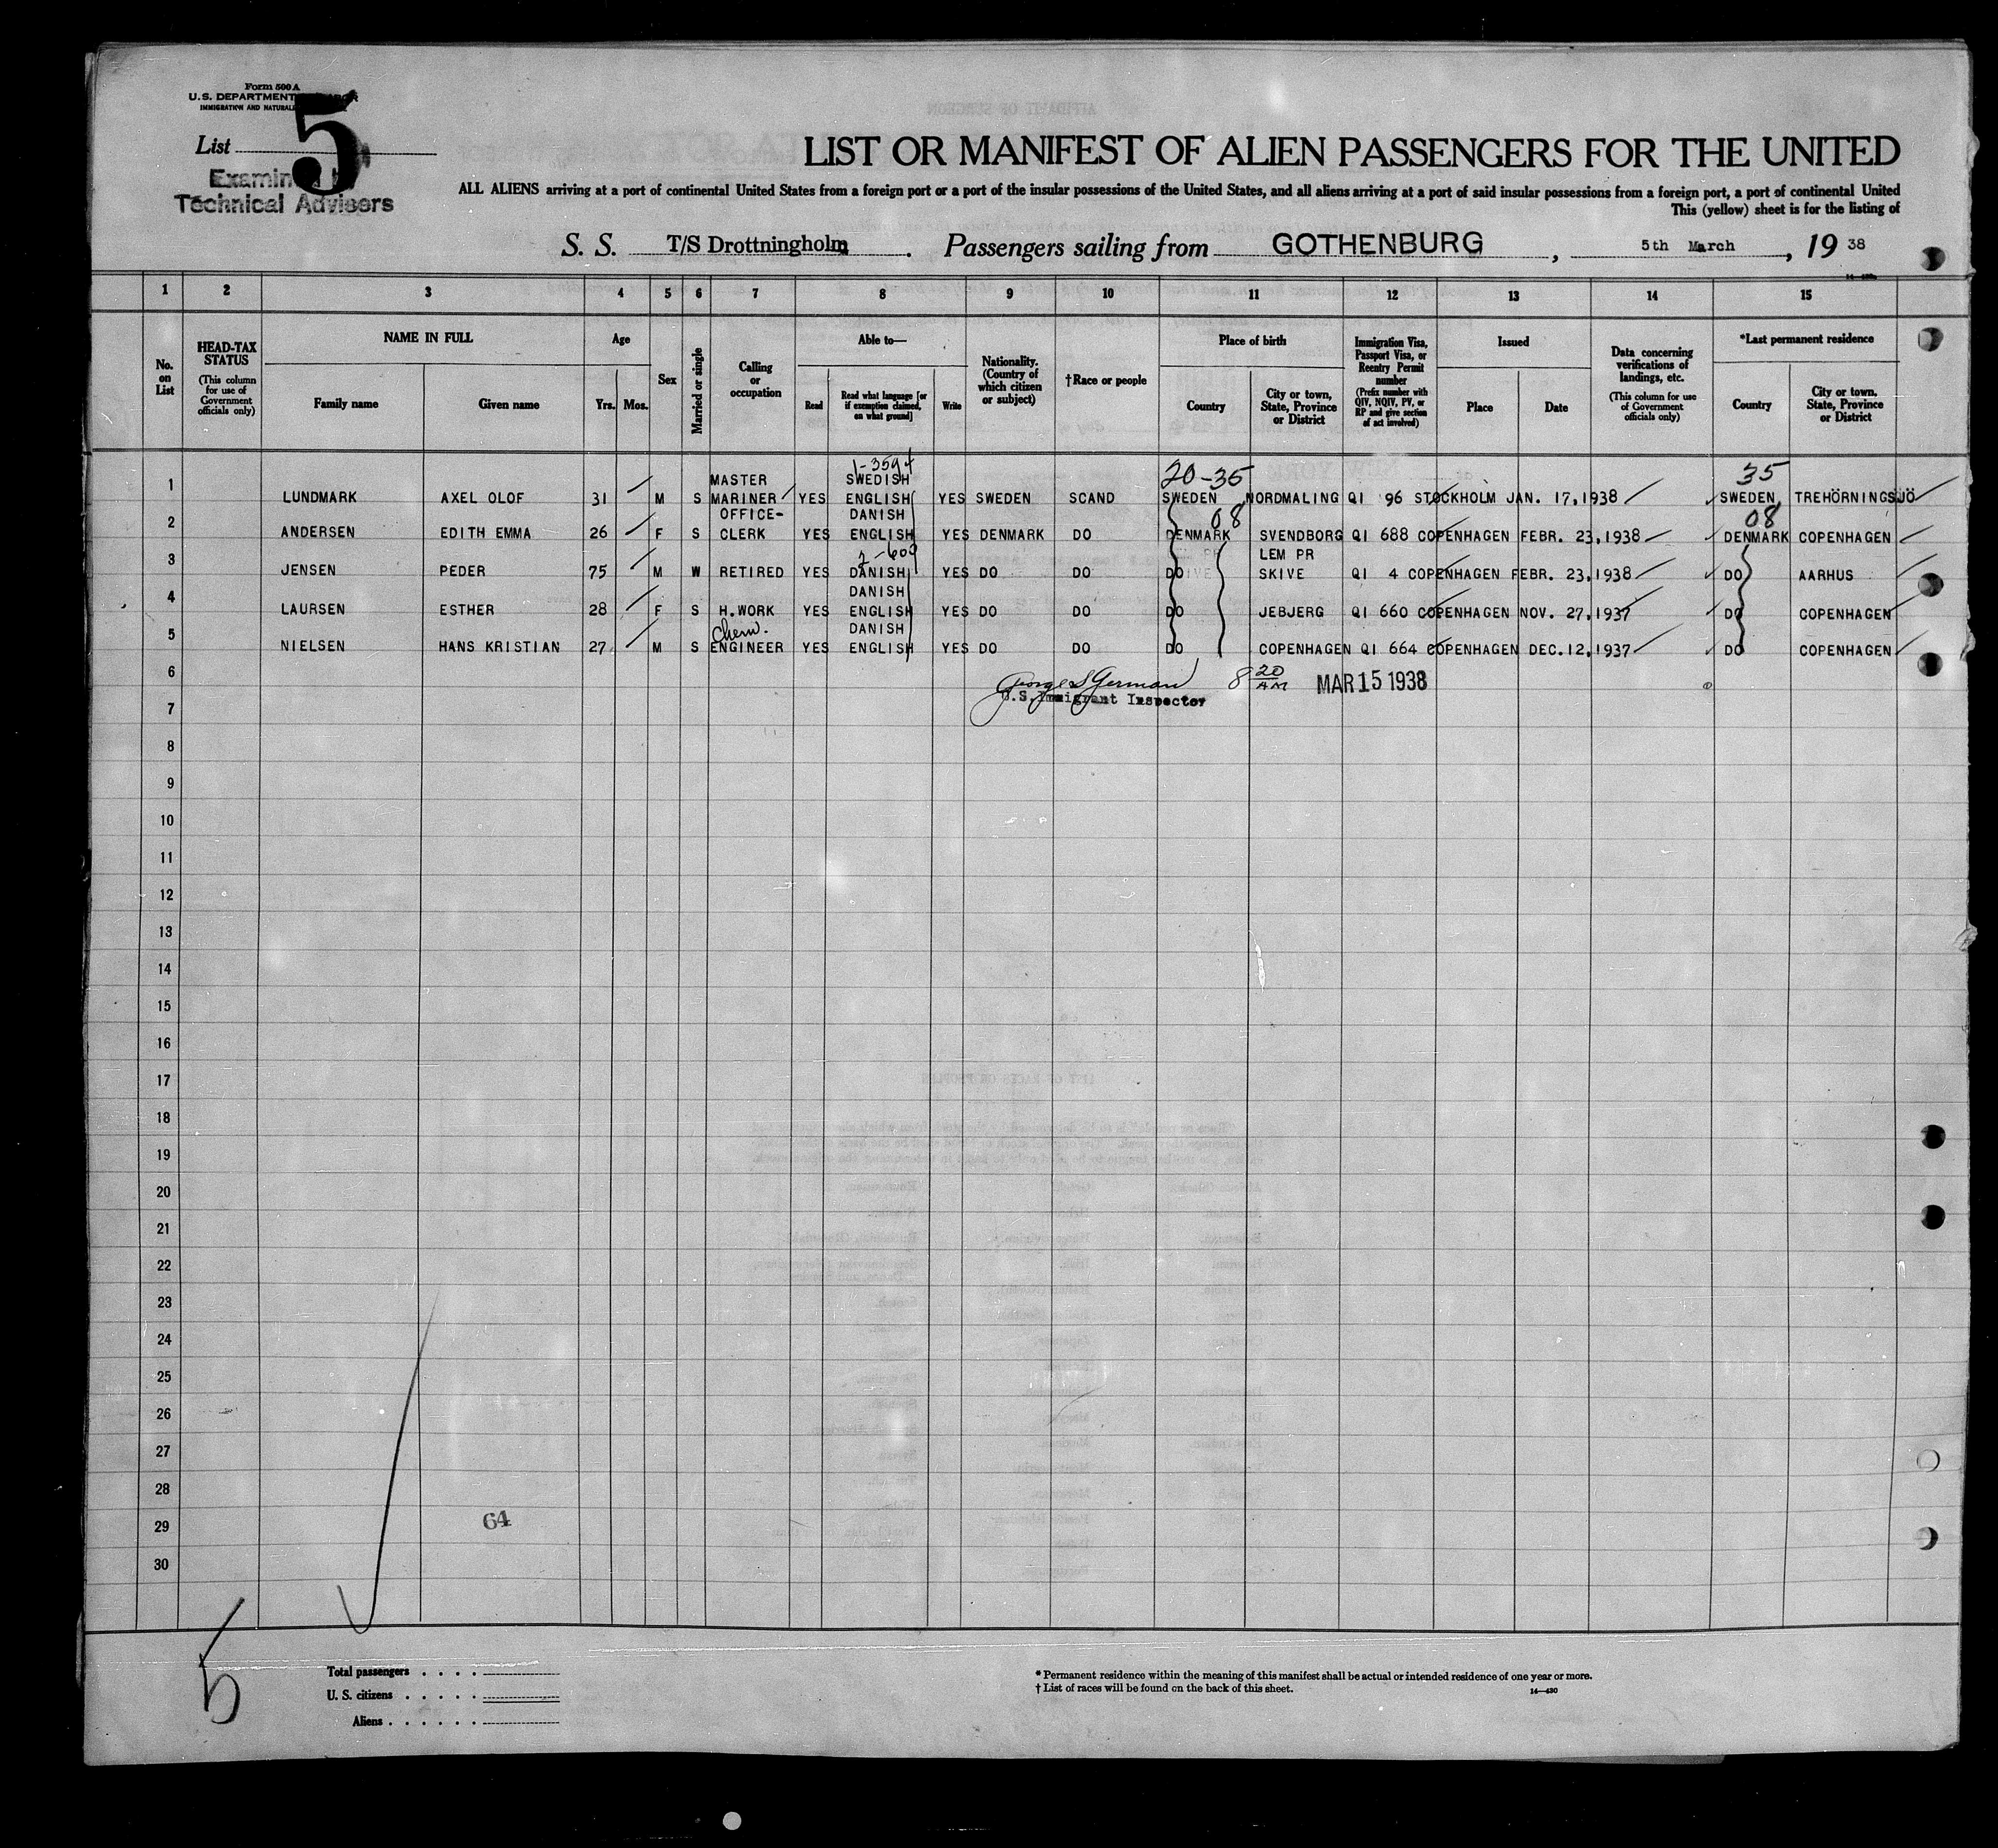 Form 500 A
U.S. DEPARTMENT
IMMIGRATION AND
List 5
Examined by
Technical Advisers
LIST OR MANIFEST OF ALIEN PASSENGERS FOR THE UNITED
ALL ALIENS arriving at a port of continental United States from a foreign port or a port of the insular possessions of the United States, and all aliens arriving at a port of said insular possessions from a foreign port, a port of continental United
This (yellow) sheet is for the listing of
S. S. T/S Drottningholm. Passengers sailing from GOTHENBURG, 5th March, 19 38
1 2 3 4 5 6 7 8 9 10 11 12 13 14 15
No. on List
HEAD-TAX STATUS (This column for use of Government officials only)
NAME IN FULL
Family name Given name
Age
Yrs. Mos.
Sex
Married or single
Calling or occupation
Able to—
Read
Read what language [or if exemption claimed, on what ground]
Write
Nationality. (Country of which citizen or subject)
†Race or people
Place of birth
Country
City or town, State, Province or District
Immigration Visa, Passport Visa, or Reentry Permit number (Prefix number with QIV, NQIV, PV, or RP and give section of act involved)
Issued
Place Date
Data concerning verifications of landings, etc. (This column for use of Government officials only)
*Last permanent residence
Country
City or town, State, Province or District
1-3594 20-35 35
MASTER SWEDISH
1 LUNDMARK AXEL OLOF 31 M S MARINER YES ENGLISH YES SWEDEN SCAND SWEDEN NORDMALING QI 96 STOCKHOLM JAN. 17,1938 SWEDEN TREHÖRNINGSJÖ
OFFICE- DANISH 08 08
2 ANDERSEN EDITH EMMA 26 F S CLERK YES ENGLISH YES DENMARK DO DENMARK SVENDBORG QI 688 COPENHAGEN FEBR. 23,1938 DENMARK COPENHAGEN
2-609 LEM PR
3 JENSEN PEDER 75 M W RETIRED YES DANISH YES DO DO DO SKIVE QI 4 COPENHAGEN FEBR. 23,1938 DO AARHUS
DANISH
4 LAURSEN ESTHER 28 F S H.WORK YES ENGLISH YES DO DO DO JEBJERG QI 660 COPENHAGEN NOV. 27,1937 DO COPENHAGEN
Chem. DANISH
5 NIELSEN HANS KRISTIAN 27 M S ENGINEER YES ENGLISH YES DO DO DO COPENHAGEN QI 664 COPENHAGEN DEC.12,1937 DO COPENHAGEN
6 George S German 8 20 AM MAR 15 1938
U.S. Immigrant Inspector
7
8
9
10
11
12
13
14
15
16
17
18
19
20
21
22
23
24
25
26
27
28
29 64
30
5
Total passengers
U. S. citizens
Aliens
* Permanent residence within the meaning of this manifest shall be actual or intended residence of one year or more.
† List of races will be found on the back of this sheet.
14—430